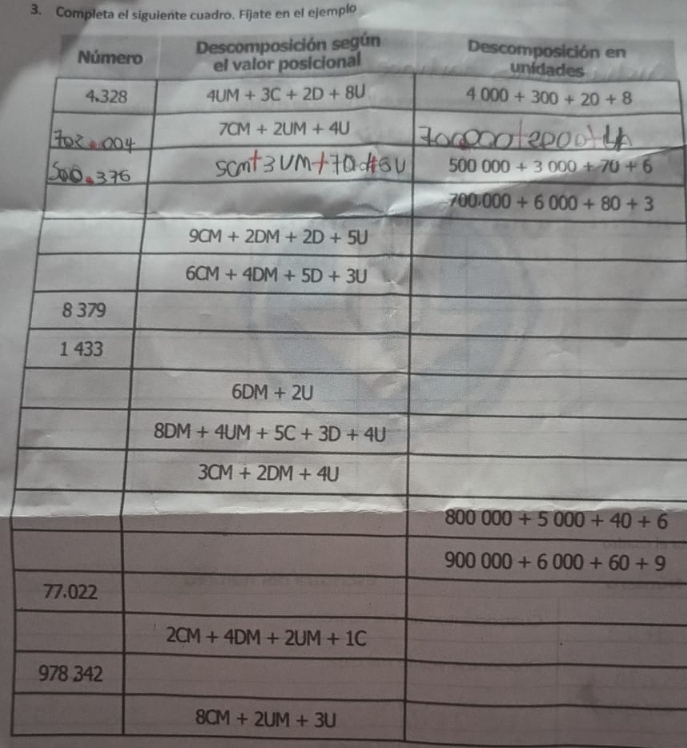 3. Completa el siguiente cuadro. Fíjate en el ejemplo
Número Descomposición según el valor posicional Descomposición en unidades
4.328 4UM + 3C + 2D + 8U 4 000 + 300 + 20 + 8
702.004 7CM + 2UM + 4U 700000+2000+4
500.376 5cm+3UM+7Qd+6U 500 000 + 3 000 + 70 + 6
700.000 + 6 000 + 80 + 3
9CM + 2DM + 2D + 5U
6CM + 4DM + 5D + 3U
8 379
1 433
6DM + 2U
8DM + 4UM + 5C + 3D + 4U
3CM + 2DM + 4U
800 000 + 5 000 + 40 + 6
900 000 + 6 000 + 60 + 9
77.022
2CM + 4DM + 2UM + 1C
978 342
8CM + 2UM + 3U